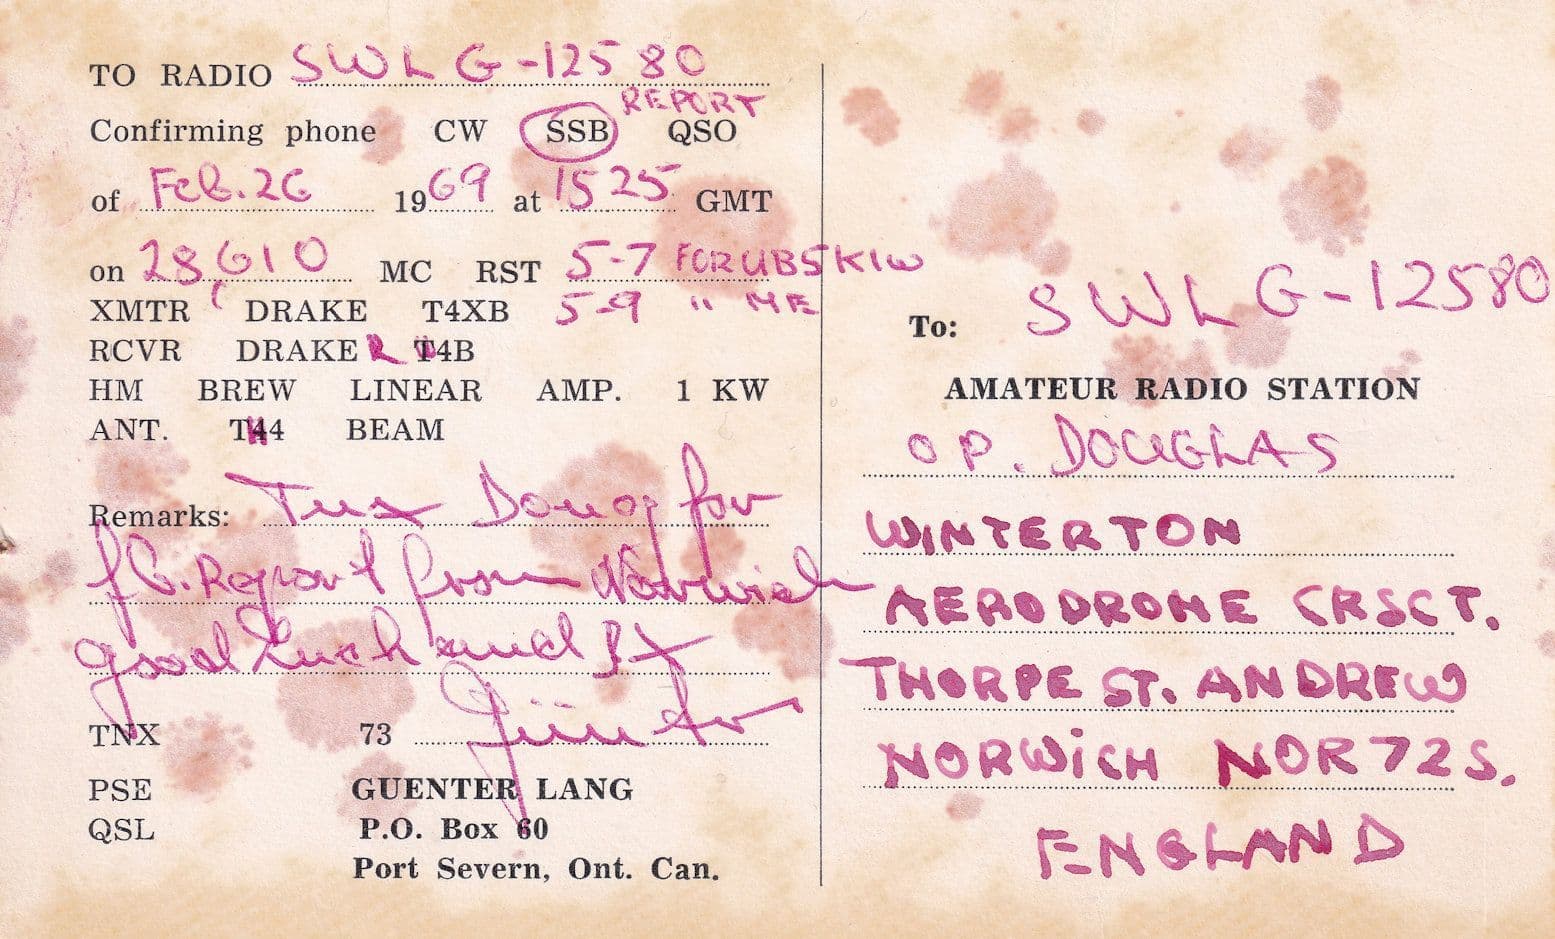 TO RADIO SWL G-12580
REPORT
Confirming phone CW SSB QSO
of Feb. 26 1969 at 1525 GMT
on 28,610 MC RST 5-7 FOR UB5KIW
XMTR DRAKE T4XB 5-9 " ME
RCVR DRAKE R 4B
HM BREW LINEAR AMP. 1 KW
ANT. TH4 BEAM
Remarks: Tnx Doug for
fb. Report from Norwich
good luck and
TNX 73 Günter
PSE GUENTER LANG
QSL P.O. Box 60
Port Severn, Ont. Can.
To: SWL G-12580
AMATEUR RADIO STATION
OP. DOUGLAS
WINTERTON
AERODROME CRSCT.
THORPE ST. ANDREW
NORWiCH NOR72S.
ENGLAND